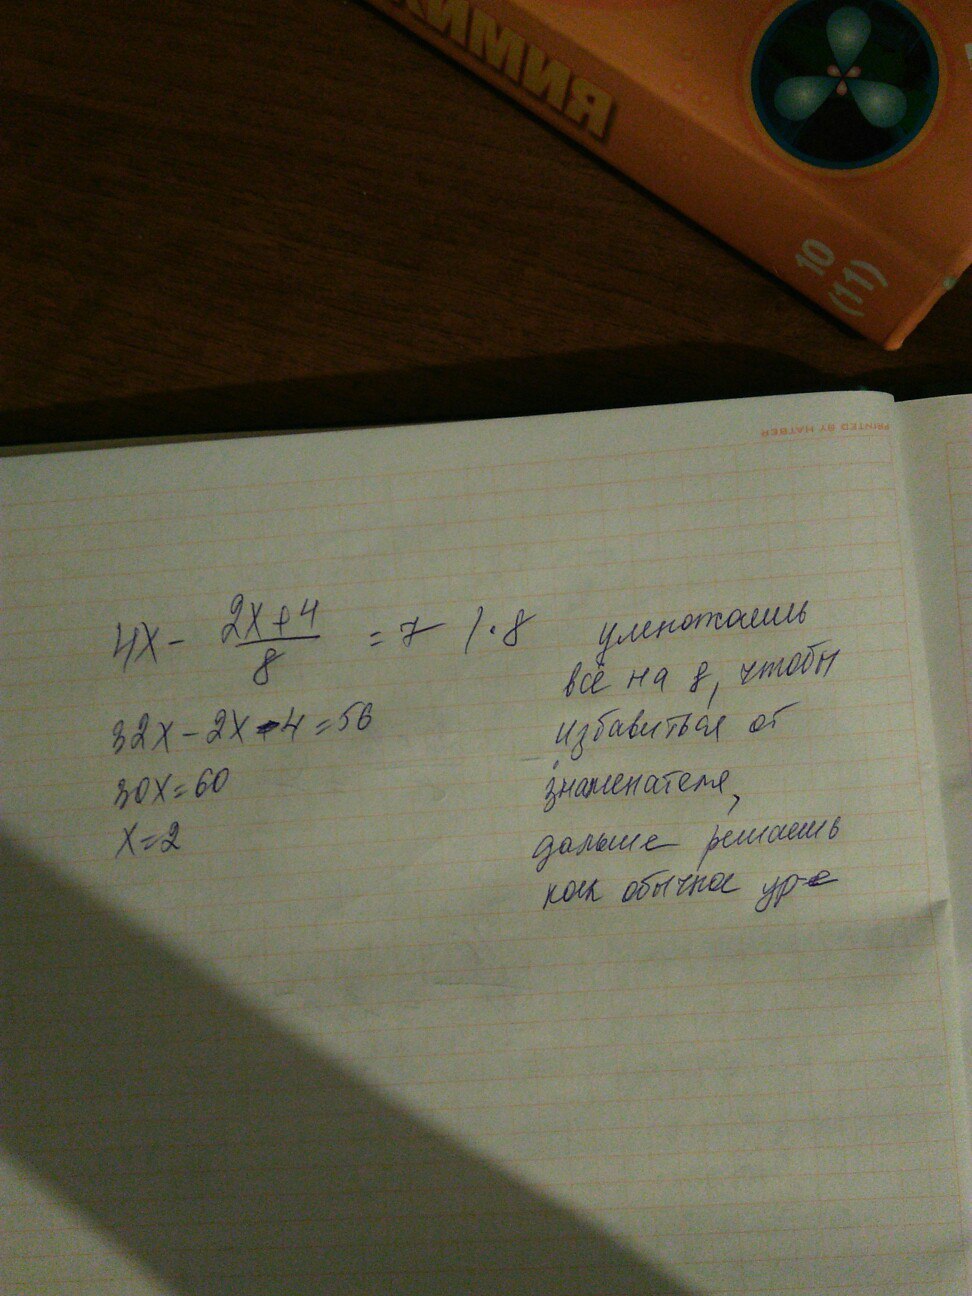 ХИМИЯ
10
(11)
PRINTED BY HATBER
4x - \frac{2x+4}{8} = 7 / · 8
32x - 2x - 4 = 56
30x = 60
x = 2
умножаешь
всё на 8, чтобы
избавиться от
знаменателя,
дальше решаешь
как обычное ур-е